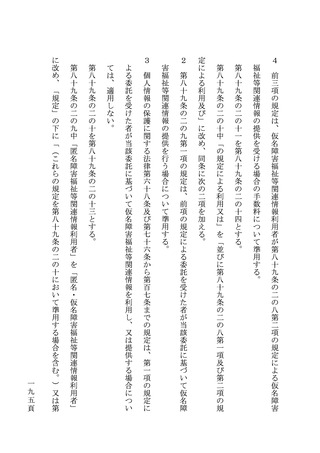 ４　前三項の規定は、仮名障害福祉等関連情報利用者が第八十九条の二の八第二項の規定による仮名障害
福祉等関連情報の提供を受ける場合の手数料について準用する。
第八十九条の二の十一を第八十九条の二の十四とする。
第八十九条の二の十中「の規定による利用又は」を「並びに第八十九条の二の八第一項及び第二項の規
定による利用及び」に改め、同条に次の二項を加える。
２　第八十九条の二の九第一項の規定は、前項の規定による委託を受けた者が当該委託に基づいて仮名障
害福祉等関連情報の提供を行う場合について準用する。
３　個人情報の保護に関する法律第六十八条及び第七十六条から第百七条までの規定は、第一項の規定に
よる委託を受けた者が当該委託に基づいて仮名障害福祉等関連情報を利用し、又は提供する場合につい
ては、適用しない。
第八十九条の二の十を第八十九条の二の十三とする。
第八十九条の二の九中「匿名障害福祉等関連情報利用者」を「匿名・仮名障害福祉等関連情報利用者」
に改め、「規定」の下に「（これらの規定を第八十九条の二の十において準用する場合を含む。）又は第
一九五頁